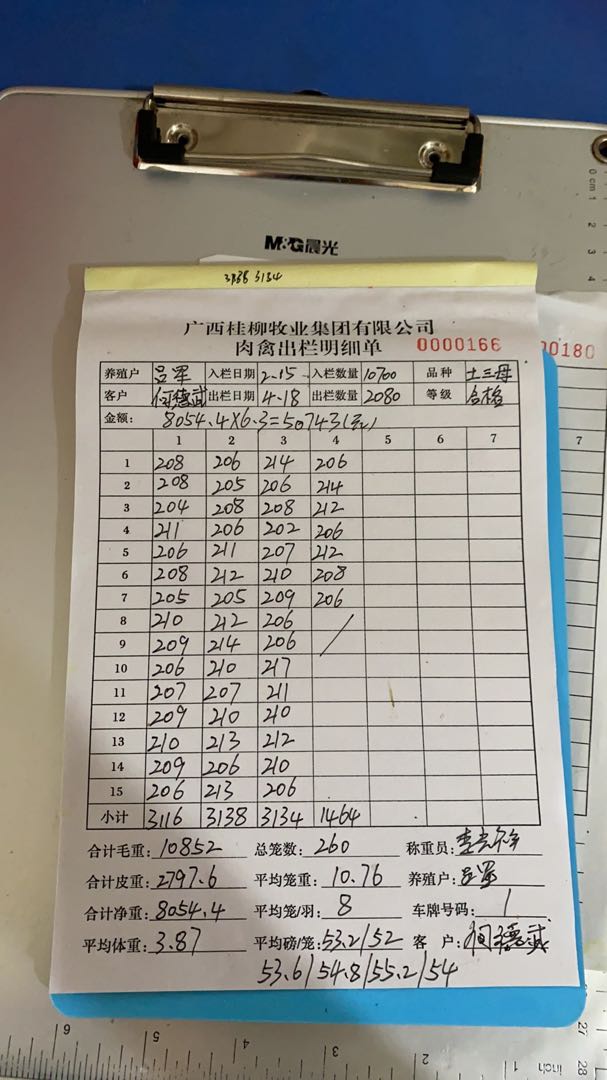 M&G晨光
3138 3134
广西桂柳牧业集团有限公司
肉禽出栏明细单 0000166
0000180
养殖户 吕军 入栏日期 2.15 入栏数量 10700 品种 土三母
客户 何德武 出栏日期 4.18 出栏数量 2080 等级 合格
金额: 8054.4×6.3=50743(元)
1 2 3 4 5 6 7
1 208 206 214 206
2 208 205 206 214
3 204 208 208 212
4 211 206 202 206
5 206 211 207 212
6 208 212 210 208
7 205 205 209 206
8 210 212 206
9 209 214 206
10 206 210 217
11 207 207 211
12 209 210 210
13 210 213 212
14 209 206 210
15 206 213 206
小计 3116 3138 3134 1464
合计毛重: 10852 总笼数: 260 称重员:
合计皮重: 2797.6 平均笼重: 10.76 养殖户: 吕军
合计净重: 8054.4 平均笼/羽: 8 车牌号码: 1
平均体重: 3.87 平均磅/笼: 53.2/52 客 户: 何德武
53.6/54.8/55.2/54
7
0 cm 1
2
3
4
6 5 4 3 2 1
27
28
inch